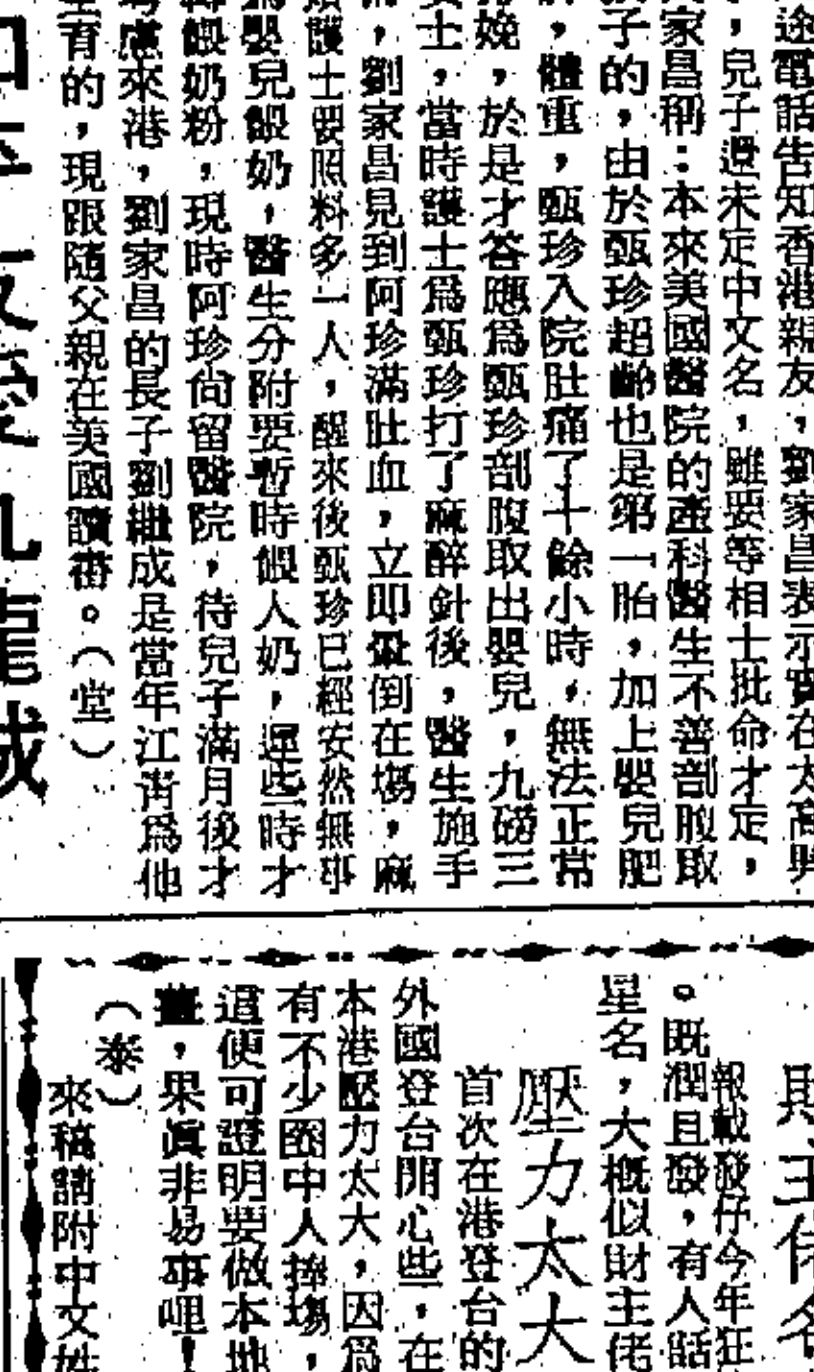 途電話告知香港親友，劉家昌表示實在太高興
，兒子還未定中文名，雖要等相士批命才定，
家昌稱：本來美國醫院的產科醫生不善剖腹取
子的，由於甄珍超齡也是第一胎，加上嬰兒肥
，體重，甄珍入院肚痛了十餘小時，無法正常
娩，於是才答應爲甄珍剖腹取出嬰兒，九磅三
士，當時護士爲甄珍打了麻醉針後，醫生施手
，劉家昌見到阿珍滿肚血，立即暈倒在塲，麻
護士要照料多一人，醒來後甄珍已經安然無事
爲嬰兒餵奶，醫生分附要暫時餵人奶，遲些時才
餵奶粉，現時阿珍尙留醫院，待兒子滿月後才
慮來港，劉家昌的長子劉繼成是當年江靑爲他
育的，現跟隨父親在美國讀書。（堂）
財主佬名
報載發仔今年狂
。既潤且發，有人話
星名，大槪似財主佬
壓力太大
首次在港登台的
外國登台開心些，在
本港壓力太大，因爲
有不少圈中人捧塲，
這便可證明要做本地
薑，果眞非易事哩！
（泰）
來稿請附中文姓